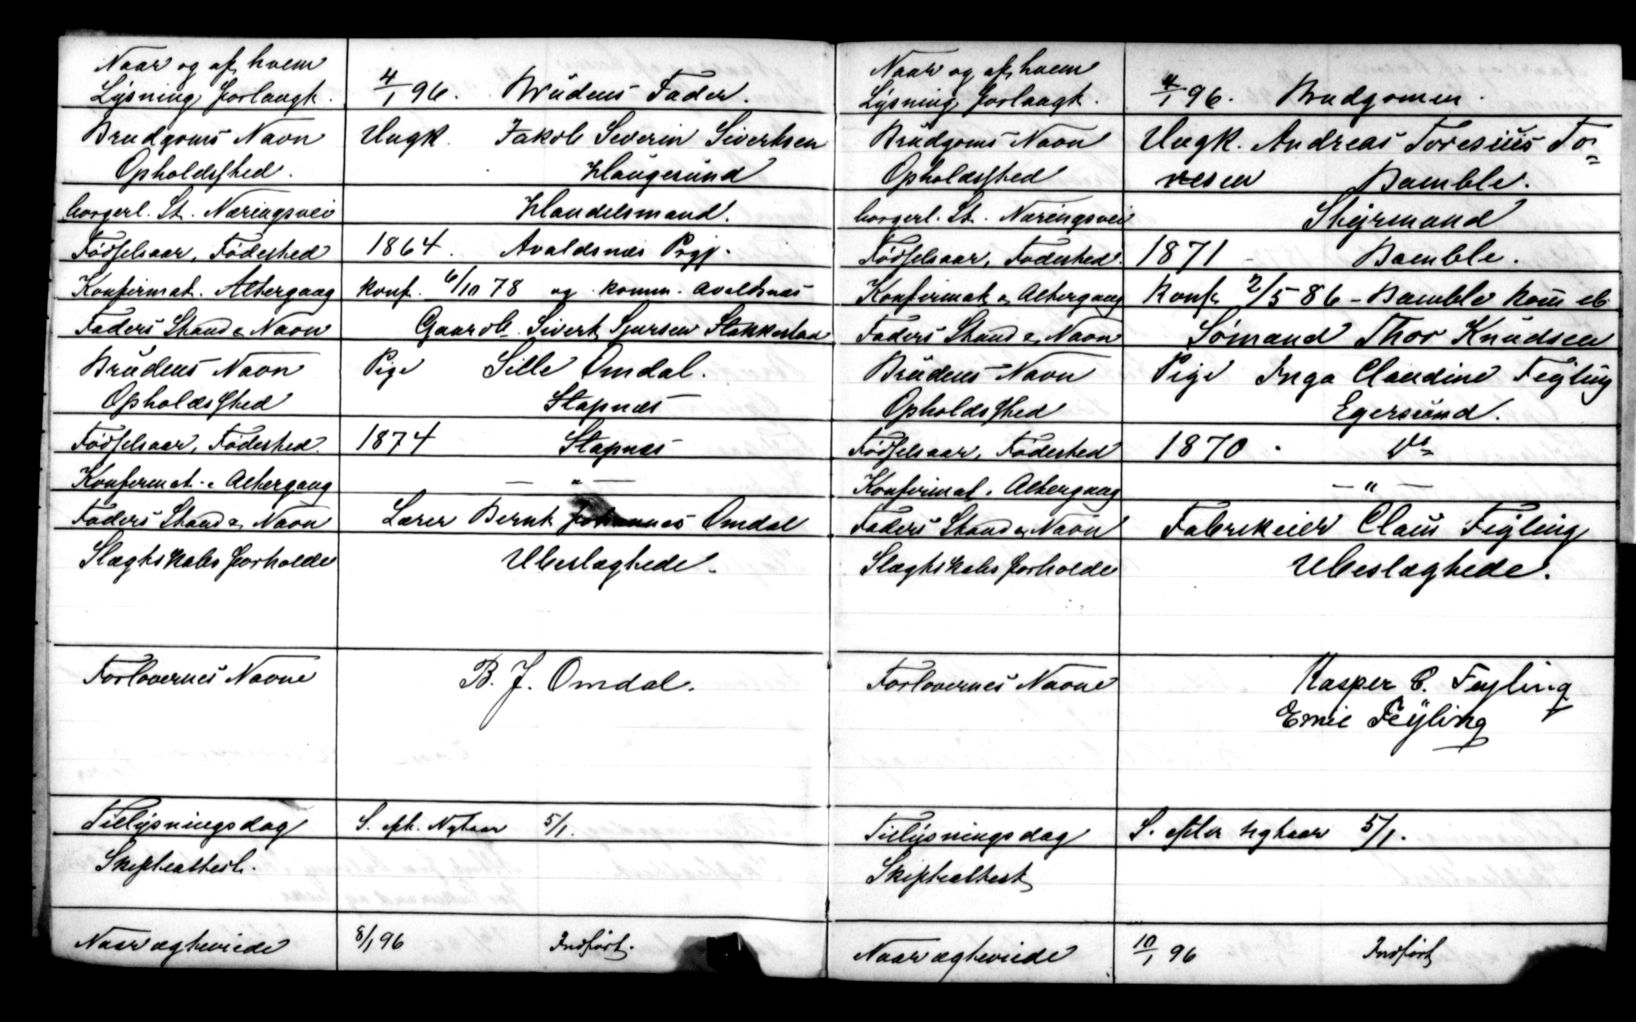 Naar og af hvem
Lysning forlangt. 4/1 96. Brudens Fader.
Brudgoms Navn Ungk. Jakob Severin Sivertsen
Opholdssted. Haugesund
borgerl. St. Næringsvei Handelsmand.
Fødselsaar, Fødested 1864. Avaldsnæs Prgj.
Konfirmat. Altergang konf. 6/10 78 og komm. Avaldsnæs
Faders Stand & Navn Gaardb. Sivert Sjursen Stakkestad
Brudens Navn Pige Sille Omdal.
Opholdssted Stapnæs
Fødselsaar, Fødested. 1874 Stapnæs
Konfirmat. & Altergang — " —
Faders Stand & Navn Lærer Bernt Johannes Omdal
Slægtskabsforholde Ubeslægtede.
Forlovernes Navne B. J. Omdal.
Tillysningsdag S. eft. Nytaar 5/1.
Skifteattest.
Naar ægteviede 8/1 96 Indført.
Naar og af hvem
Lysning forlangt. 4/1 96. Brudgomen.
Brudgoms Navn Ungk. Andreas Toresius To=
Opholdssted resen Bamble.
borgerl. St. Næringsvei Styrmand
Fødselsaar, Fødested. 1871 - Bamble.
Konfirmat & Altergang Konf. 2/5 86 - Bamble kom
Faders Stand & Navn Sømand Thor Knudsen
Brudens Navn Pige Inga Claudine Feyling
Opholdssted Egersund.
Fødselsaar, Fødested 1870 - Do
Konfirmat. Altergang — " —
Faders Stand & Navn Fabrikeier Claus Feyling
Slægtskabsforholde Ubeslægtede.
Forlovernes Navne Kasper C. Feyling
Emil Feyling
Tillysningsdag S. efter nytaar 5/1.
Skifteattest
Naar ægteviede 10/1 96 Indført